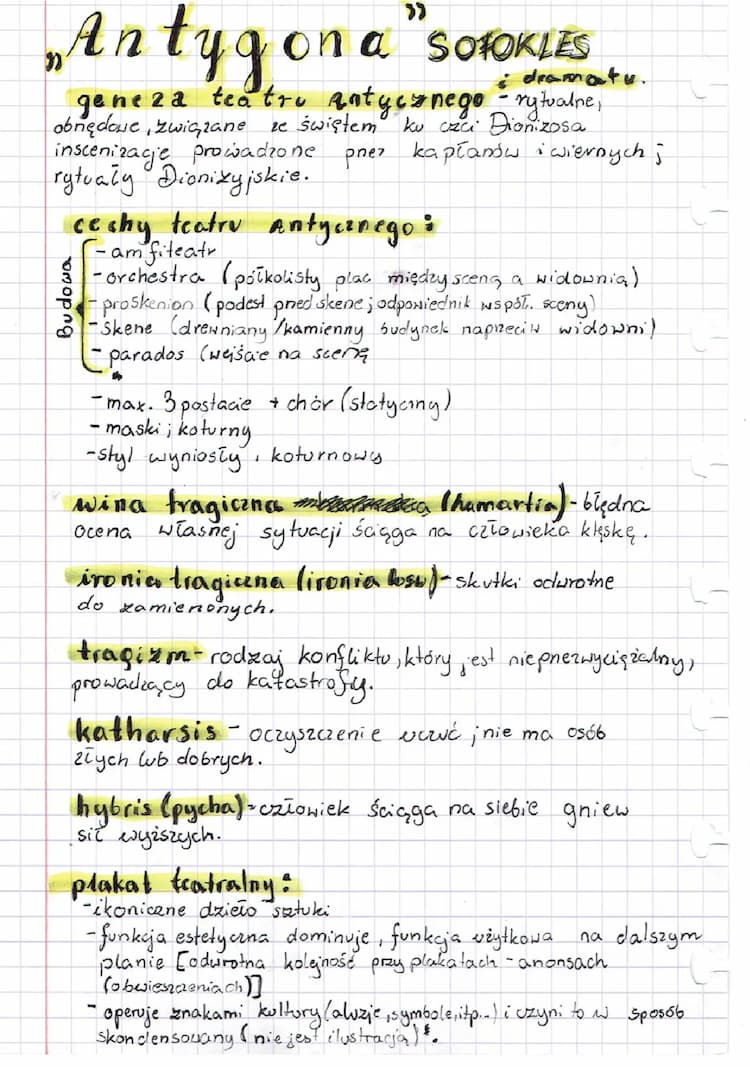 „Antygona” SOFOKLES
geneza teatru antycznego i dramatu. - rytualne,
obrzędowe, związane ze świętem ku czci Dionizosa
inscenizacje prowadzone przez kapłanów i wiernych;
rytuały Dionizyjskie.
cechy teatru antycznego:
Budowa
- amfiteatr
- orchestra (półkolisty plac między sceną a widownią)
- proskenion (podest przed skene; odpowiednik współ. sceny)
- skene (drewniany/kamienny budynek naprzeciw widowni)
- parados (wejście na scenę
- max. 3 postacie + chór (statyczny)
- maski; koturny
- styl wyniosły, koturnowy
wina tragiczna (hamartia) - błędna
ocena własnej sytuacji ściąga na człowieka klęskę.
ironia tragiczna (ironia losu) - skutki odwrotne
do zamierzonych.
tragizm - rodzaj konfliktu, który jest nieprzezwyciężalny,
prowadzący do katastrofy.
katharsis - oczyszczenie uczuć; nie ma osób
złych lub dobrych.
hybris (pycha) - człowiek ściąga na siebie gniew
sił wyższych.
plakat teatralny:
- ikoniczne dzieło sztuki
- funkcja estetyczna dominuje, funkcja użytkowa na dalszym
planie [odwrotna kolejność przy plakatach - anonsach
(obwieszczeniach)]
- operuje znakami kultury (aluzje, symbole, itp...) i czyni to w sposób
skondensowany (nie jest ilustracją)*.